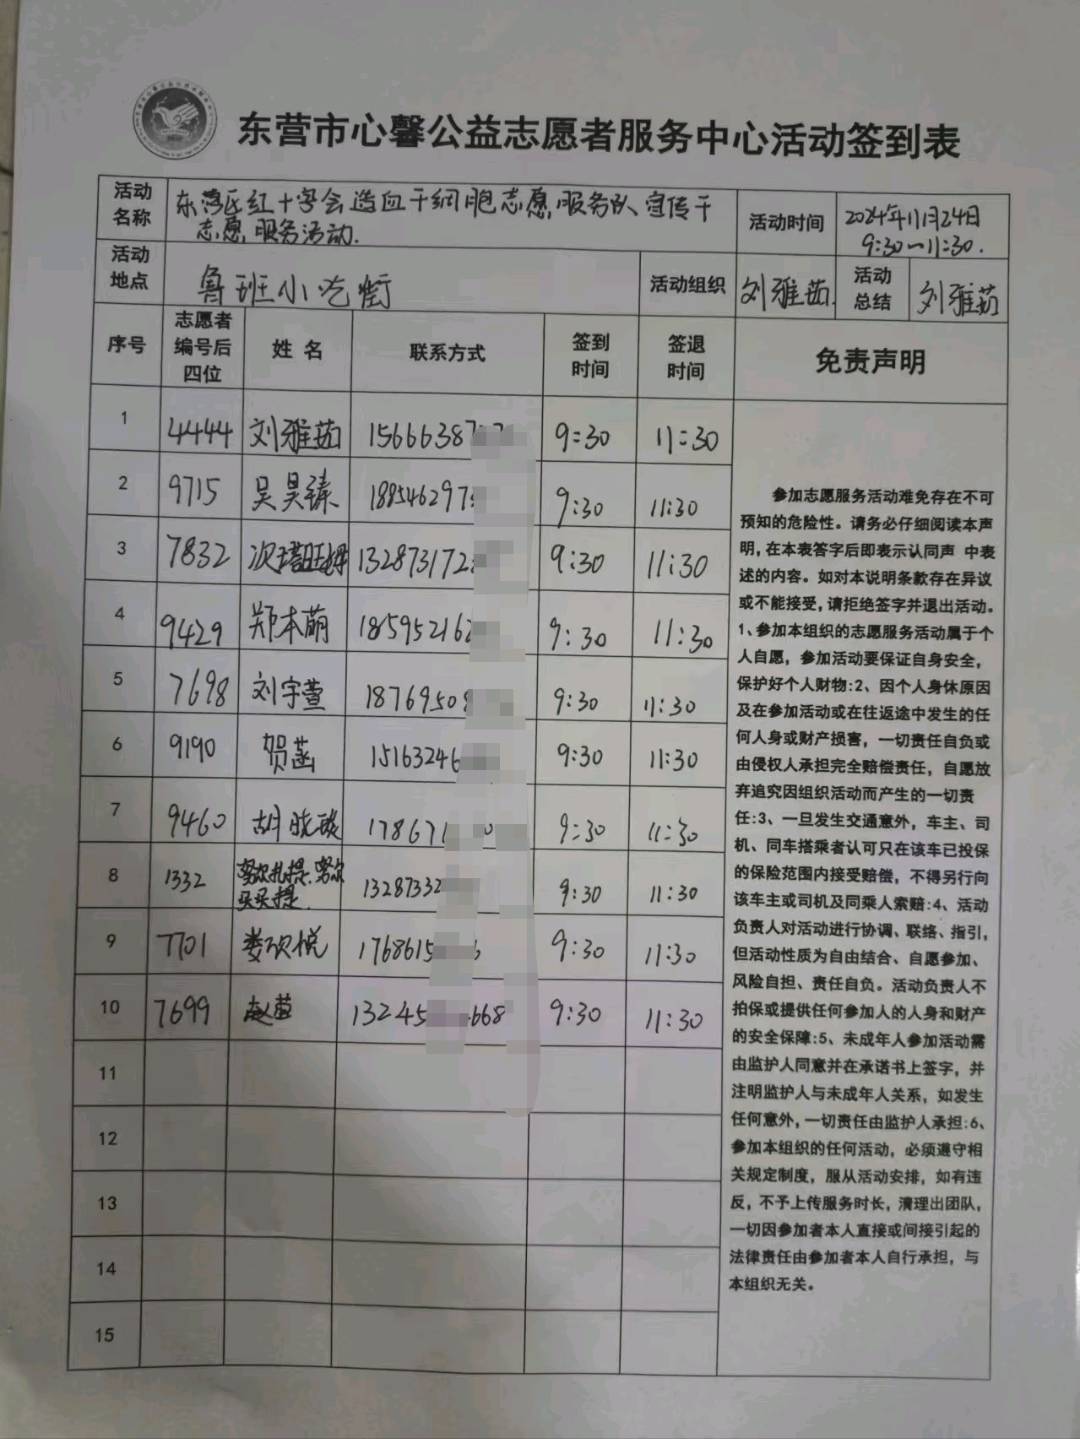 东营市心馨公益志愿者服务中心活动签到表
活动名称 东营区红十字会造血干细胞志愿服务队宣传干
志愿服务活动.
活动时间 2024年11月24日
9:30—11:30.
活动地点 鲁班小吃街 活动组织 刘雅茹. 活动总结 刘雅茹
序号 志愿者编号后四位 姓名 联系方式 签到时间 签退时间 免责声明
1 4444 刘雅茹 15666387 9:30 11:30
2 9715 吴昊臻 188546297 9:30 11:30
3 7832 132873172 9:30 11:30
4 9429 郑本萌 185952162 9:30 11:30
5 7698 刘宇萱 18769508 9:30 11:30
6 9190 贺菡 15163246 9:30 11:30
7 9460 胡晓 17867 0 9:30 11:30
8 1332 努尔扎提.努尔
买买提. 13287332 9:30 11:30
9 7701 娄欣悦 1768615 9:30 11:30
10 7699 赵萱 13245 668 9:30 11:30
11
12
13
14
15
参加志愿服务活动难免存在不可
预知的危险性。请务必仔细阅读本声
明,在本表答字后即表示认同声 中表
述的内容。如对本说明条款存在异议
或不能接受,请拒绝签字并退出活动。
1、参加本组织的志愿服务活动属于个
人自愿，参加活动要保证自身安全，
保护好个人财物:2、因个人身休原因
及在参加活动或在往返途中发生的任
何人身或财产损害，一切责任自负或
由侵权人承担完全赔偿责任，自愿放
弃追究因组织活动而产生的一切责
任:3、一旦发生交通意外，车主、司
机、同车搭乘者认可只在该车已投保
的保险范围内接受赔偿，不得另行向
该车主或司机及同乘人索赔:4、活动
负责人对活动进行协调、联络、指引，
但活动性质为自由结合、自愿参加、
风险自担、责任自负。活动负责人不
拍保或提供任何参加人的人身和财产
的安全保障:5、未成年人参加活动需
由监护人同意并在承诺书上签字，并
注明监护人与未成年人关系，如发生
任何意外,一切责任由监护人承担:6、
参加本组织的任何活动，必须遵守相
关规定制度，服从活动安排，如有违
反，不予上传服务时长，清理出团队，
一切因参加者本人直接或间接引起的
法律责任由参加者本人自行承担，与
本组织无关。